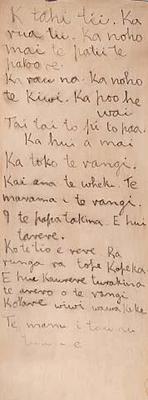 K tahi tii. Ka
rua tii. Ka noho
mai te patii te
pakore.
Ka rau na. Ka noho
te Kiwi. Ka poo he
wai
Tai tai to pii to paa.
Ka hui a mai
Ka toko te rangi.
Kai ana te whetu. Te
marama i te rangi.
I te papa takina. E hui
tarere.
Ko te tio e rere Ra
runga ra tope Kopeka
E hue Kaurere turakina
te arero o te rangi
Kotare wiwi wawa
Te manu i